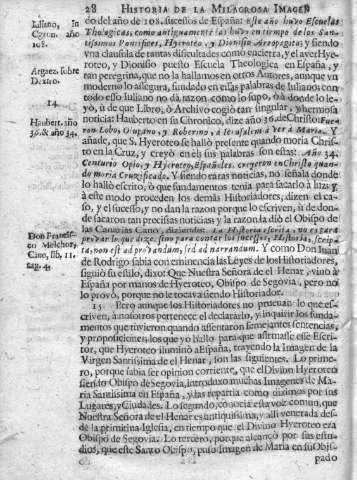 28 HISTORIA DE LA MILAGROSA IMAGEN
do del año de 108. sucessos de España: este año huvo Escuelas
Theologicas, como antiguamente las huvo en tiempo de los San-
tissimos Pontifices, Hyeroteo, y Dionisio Areopagitas; y siendo
vna clausula de tantas dificultades como encierra, y el aver Hye-
roteo, y Dionisio puesto Escuela Theologica en España, y
tan peregrina, que no la hallamos en otros Autores, aunque vn
moderno lo assegura, fundado en essas palabras de Juliano; con
todo esso Juliano no dà razon como lo supo, ò à donde lo le-
yò, ù de que Libro, ò Archivo cogiò tan singular, y hermosa
noticia: Hauberto en su Chronicon, dize año 36. de Christo: Fue-
ron Lobo, Giugano, y Roberino, à Jerusalem à ver à Maria. Y
añade, que S. Hyeroteo se hallò presente quando moria Chris-
to en la Cruz, y creyò en èl: sus palabras son estas: Año 34.
Centurio Opio, y Hyeroteo, Españoles, creyeron en Christo quan-
do moria Crucificado. Y siendo raras noticias, no señala donde
lo hallò escrito, ò que fundamentos tenia para sacarlo à luz; y
à este modo proceden los demàs Historiadores, dizen el ca-
so, y el sucesso, y no dan la razon porque lo escriven, ù de don-
de sacaron tan precisas noticias; y la razon la diò el Obispo de
las Canarias Cano, diziendo: La Historia escrita, no es para
provar lo que dize, sino para contar los sucessos, Historia, scrip-
ta, non est ad probandum, sed ad narrandum. Y como Don Juan
de Rodrigo sabia con eminencia las Leyes de los Historiadores,
siguiò su estilo, dixo: Que Nuestra Señora de el Henar, vino à
España por manos de Hyeroteo, Obispo de Segovia, pero no
lo provò, porque no le tocava siendo Historiador.
15 Pero aunque los Historiadores no prueban lo que es-
criven, à nosotros pertenece el declararlo, y inquirir los funda-
mentos que tuvieron quando assentaron semejantes sentencias,
y proposiciones: los que yo hallo para que afirmasse esse Escri-
tor, que Hyeroteo iluminò à España, trayendo la Imagen de la
Virgen Santissima de el Henar, son las siguientes. Lo prime-
ro, porque sabia ser opinion corriente, que el Divino Hyeroteo
siendo Obispo de Segovia, introduxo muchas Imagenes de Ma-
ria Santissima en España, y las repartiò como quinas por sus
Lugares, y Ciudades. Lo segundo, conocia esta voz comun, que
Nuestra Señora de el Henar es antiquissima, y alli venerada des-
de la primitiva Iglesia, en tiempo que el Divino Hyeroteo era
Obispo de Segovia. Lo tercero, porque alcançò por sus estu-
dios, que este Santo Obispo, puso Imagen de Maria en su Obis-
pado
Juliano, In
Cgron. año
108.
Argaez. sobre
Dextro.
14.
Haubert. año
36. & año 34.
Don Francis-
co Melchor,
Cano, lib. 11.
pag. 4.